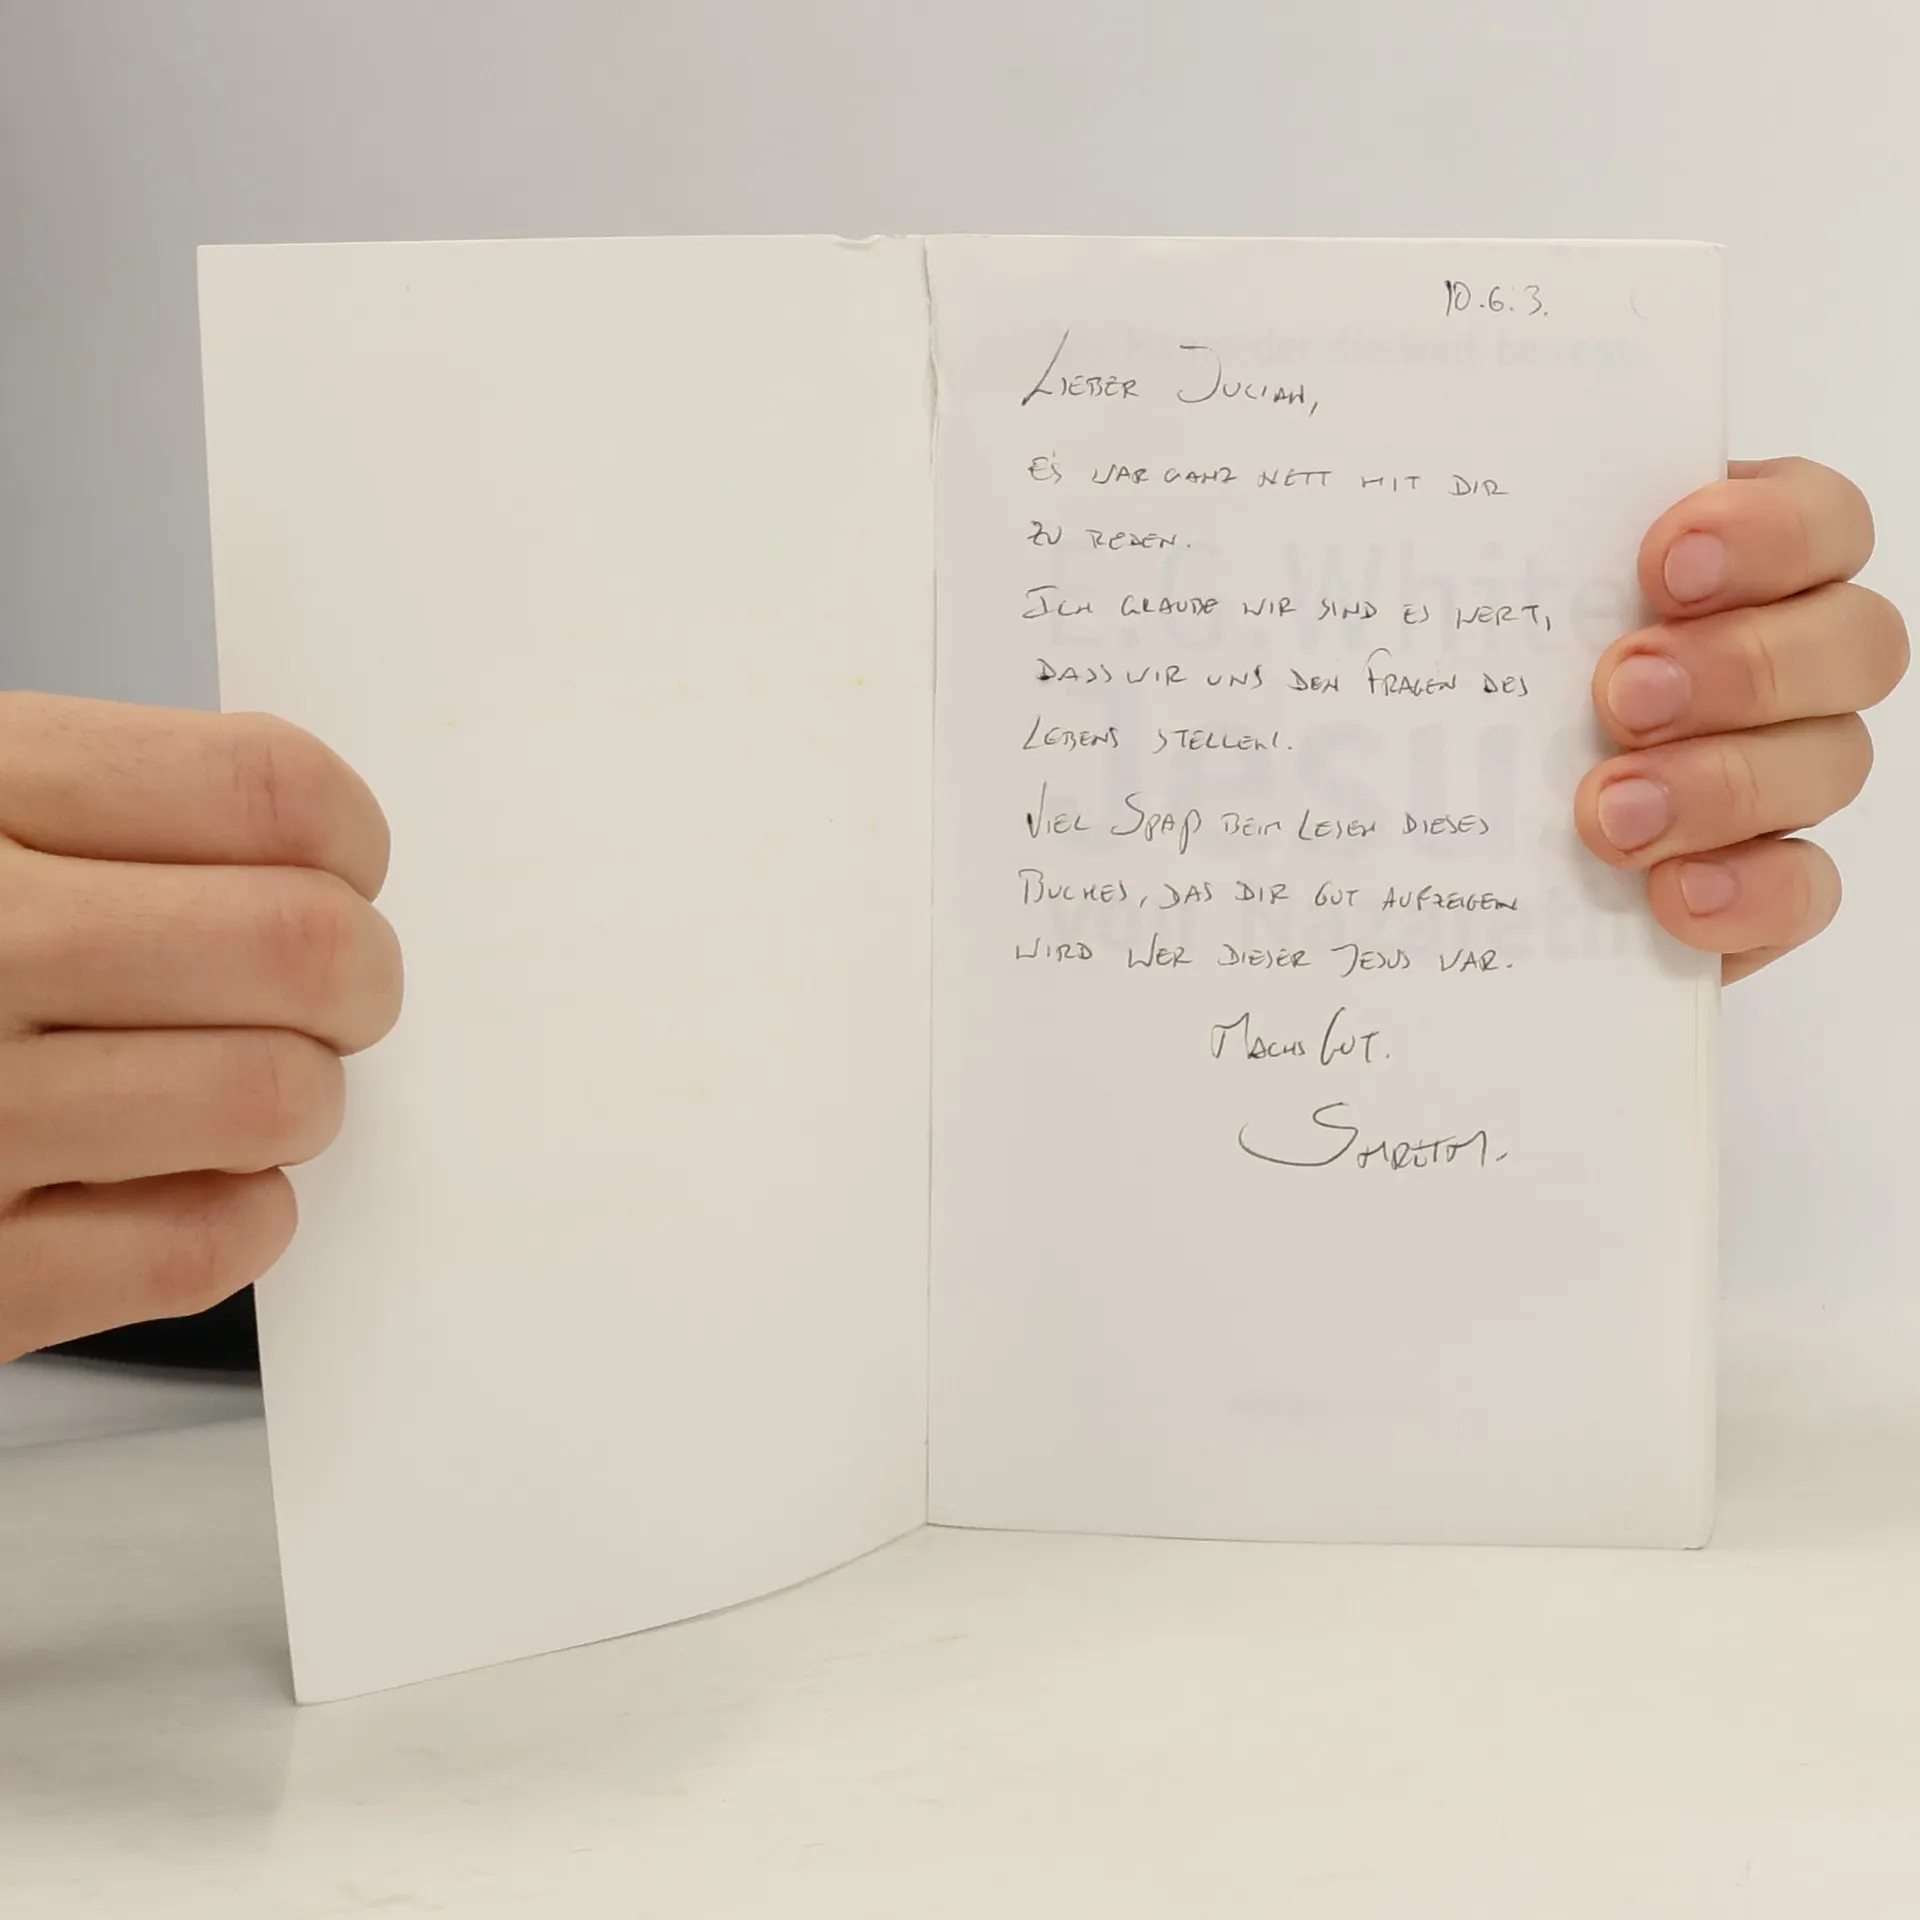 10.6.3.
LIEBER JULIAN,
ES WAR GANZ NETT MIT DIR
ZU REDEN.
ICH GLAUBE WIR SIND ES WERT,
DASS WIR UNS DEN FRAGEN DES
LEBENS STELLEN.
VIEL SPAß BEIM LESEN DIESES
BUCHES, DAS DIR GUT AUFZEIGEN
WIRD WER DIESER JESUS WAR.
MACHS GUT.
E.G.White
Jesus
von Nazareth